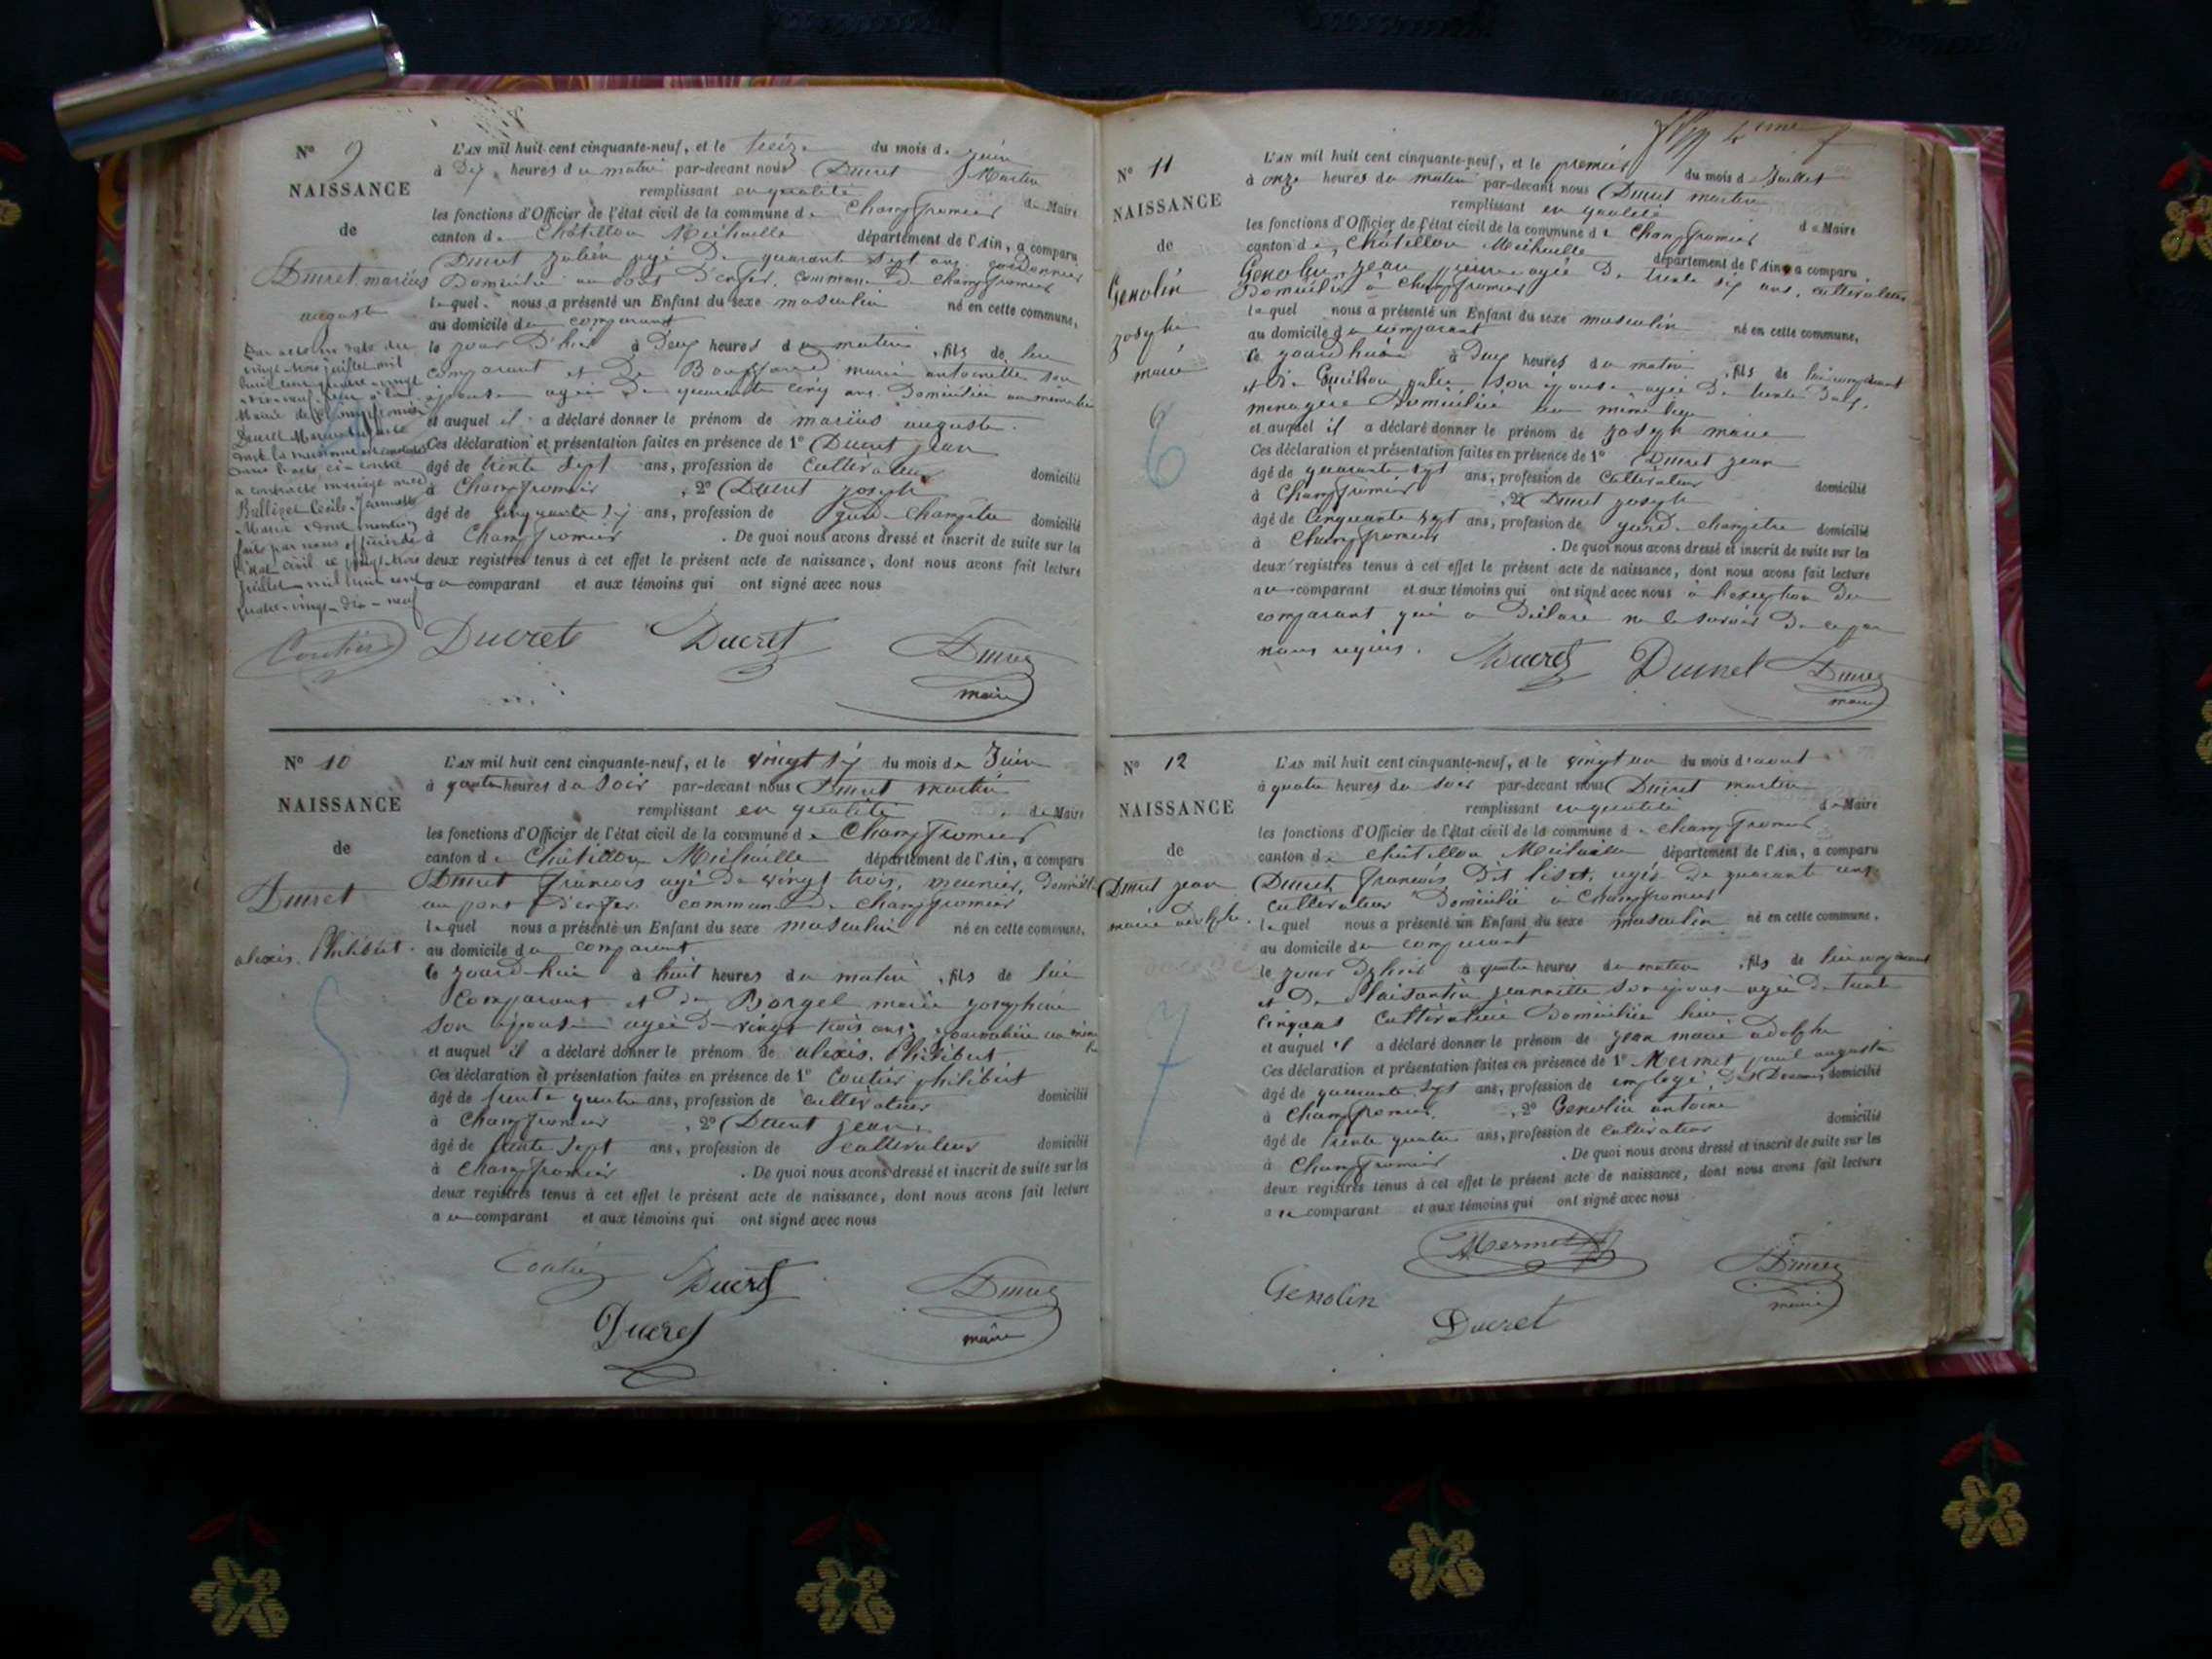 N° 9
NAISSANCE
de
Ducret marius
auguste
Par acte en date du
vingt trois juillet mil
huit cent quatre-vingt
Mairie de Champfromier
Ducret Marius Auguste
dont la naissance est constatée
dans l'acte ci-contre
a contracté mariage avec
Cécile Jeannette
Marie dont mention
faite par nous officier de
l'état civil le vingt trois
juillet mil huit cent
quatre-vingt-dix-neuf
Coutier
L'AN mil huit cent cinquante-neuf, et le treize du mois de juin
à dix heures du matin par-devant nous Ducret Martin
remplissant en qualité de Maire
les fonctions d'Officier de l'état civil de la commune de Champfromier
canton de Châtillon Michaille département de l'Ain, a comparu
Ducret julien agé de quarante sept ans, cordonnier
Domicilié au pont d'enfer, commune de Champfromier
lequel nous a présenté un Enfant du sexe masculin né en cette commune,
au domicile du comparant
le jour d'hier à deux heures du matin, fils de lui
comparant et de marie antoinette son
épouse agée de quarante cinq ans Domiciliée au même lieu
et auquel il a déclaré donner le prénom de marius auguste.
Ces déclaration et présentation faites en présence de 1° Ducret jean
âgé de trente sept ans, profession de cultivateur domicilié
à Champfromier, 2° Ducret joseph
âgé de cinquante six ans, profession de garde-champêtre domicilié
à Champfromier. De quoi nous avons dressé et inscrit de suite sur les
deux registres tenus à cet effet le présent acte de naissance, dont nous avons fait lecture
au comparant et aux témoins qui ont signé avec nous
Ducret Ducret Ducret
maire
N° 10
NAISSANCE
de
Ducret
alexis Philibert.
5
L'AN mil huit cent cinquante-neuf, et le vingt six du mois de Juin
à quatre heures du soir par-devant nous Ducret martin
remplissant en qualité de Maire
les fonctions d'Officier de l'état civil de la commune de Champfromier
canton de Châtillon Michaille département de l'Ain, a comparu
Ducret françois agé de vingt trois, meunier, domicilié
au pont d'enfer commune de Champfromier
lequel nous a présenté un Enfant du sexe masculin né en cette commune,
au domicile du comparant
le jourd'hui à huit heures du matin, fils de lui
comparant et de Borgel marie josephine
son épouse agée de vingt trois ans, journalière au même
lieu
et auquel il a déclaré donner le prénom de alexis. Philibert
Ces déclaration et présentation faites en présence de 1° Coutier philibert
âgé de trente quatre ans, profession de cultivateur domicilié
à Champfromier, 2° Ducret jean
âgé de trente sept ans, profession de cultivateur domicilié
à Champfromier. De quoi nous avons dressé et inscrit de suite sur les
deux registres tenus à cet effet le présent acte de naissance, dont nous avons fait lecture
au comparant et aux témoins qui ont signé avec nous
Coutier Ducret Ducret
Ducret maire
N° 11
NAISSANCE
de
Genolin
joseph
marie
6
L'AN mil huit cent cinquante-neuf, et le premier du mois de Juillet
à onze heures du matin par-devant nous Ducret martin
remplissant en qualité de Maire
les fonctions d'Officier de l'état civil de la commune de Champfromier
canton de Châtillon Michaille département de l'Ain, a comparu
Genolin, jean pierre agé de trente six ans, cultivateur
Domicilié à Champfromier
lequel nous a présenté un Enfant du sexe masculin né en cette commune,
au domicile du comparant
le jourd'hui à deux heures du matin, fils de lui comparant
et de julie son épouse agée de trente deux,
menagère Domiciliée au même lieu
et auquel il a déclaré donner le prénom de joseph marie
Ces déclaration et présentation faites en présence de 1° Ducret jean
âgé de quarante sept ans, profession de Cultivateur domicilié
à Champfromier, 2° Ducret joseph
âgé de Cinquante sept ans, profession de garde-champêtre domicilié
à Champfromier. De quoi nous avons dressé et inscrit de suite sur les
deux registres tenus à cet effet le présent acte de naissance, dont nous avons fait lecture
au comparant et aux témoins qui ont signé avec nous à l'exception du
comparant qui a Déclaré ne le savoir de ce par
nous requis.
Ducret Ducret Ducret
maire
N° 12
NAISSANCE
de
Ducret jean
marie adolphe.
7
L'AN mil huit cent cinquante-neuf, et le vingt un du mois d'aout
à quatre heures du soir par-devant nous Ducret martin
remplissant en qualité de Maire
les fonctions d'Officier de l'état civil de la commune de Champfromier
canton de Châtillon Michaille département de l'Ain, a comparu
Ducret françois dit agé de quarante ans
cultivateur Domicilié à Champfromier
lequel nous a présenté un Enfant du sexe masculin né en cette commune,
au domicile du comparant
le jour d'hier à quatre heures du matin, fils de lui comparant
et de Plaisantin jeannette son épouse agée de trente
cinq ans Cultivatrice Domiciliée
et auquel il a déclaré donner le prénom de jean marie adolphe
Ces déclaration et présentation faites en présence de 1° Mermet paul augustin
âgé de quarante sept ans, profession de employé des Douanes domicilié
à Champfromier, 2° Genolin antoine
âgé de trente quatre ans, profession de cultivateur domicilié
à Champfromier. De quoi nous avons dressé et inscrit de suite sur les
deux registres tenus à cet effet le présent acte de naissance, dont nous avons fait lecture
au comparant et aux témoins qui ont signé avec nous
Mermet Ducret
Genolin maire
Ducret